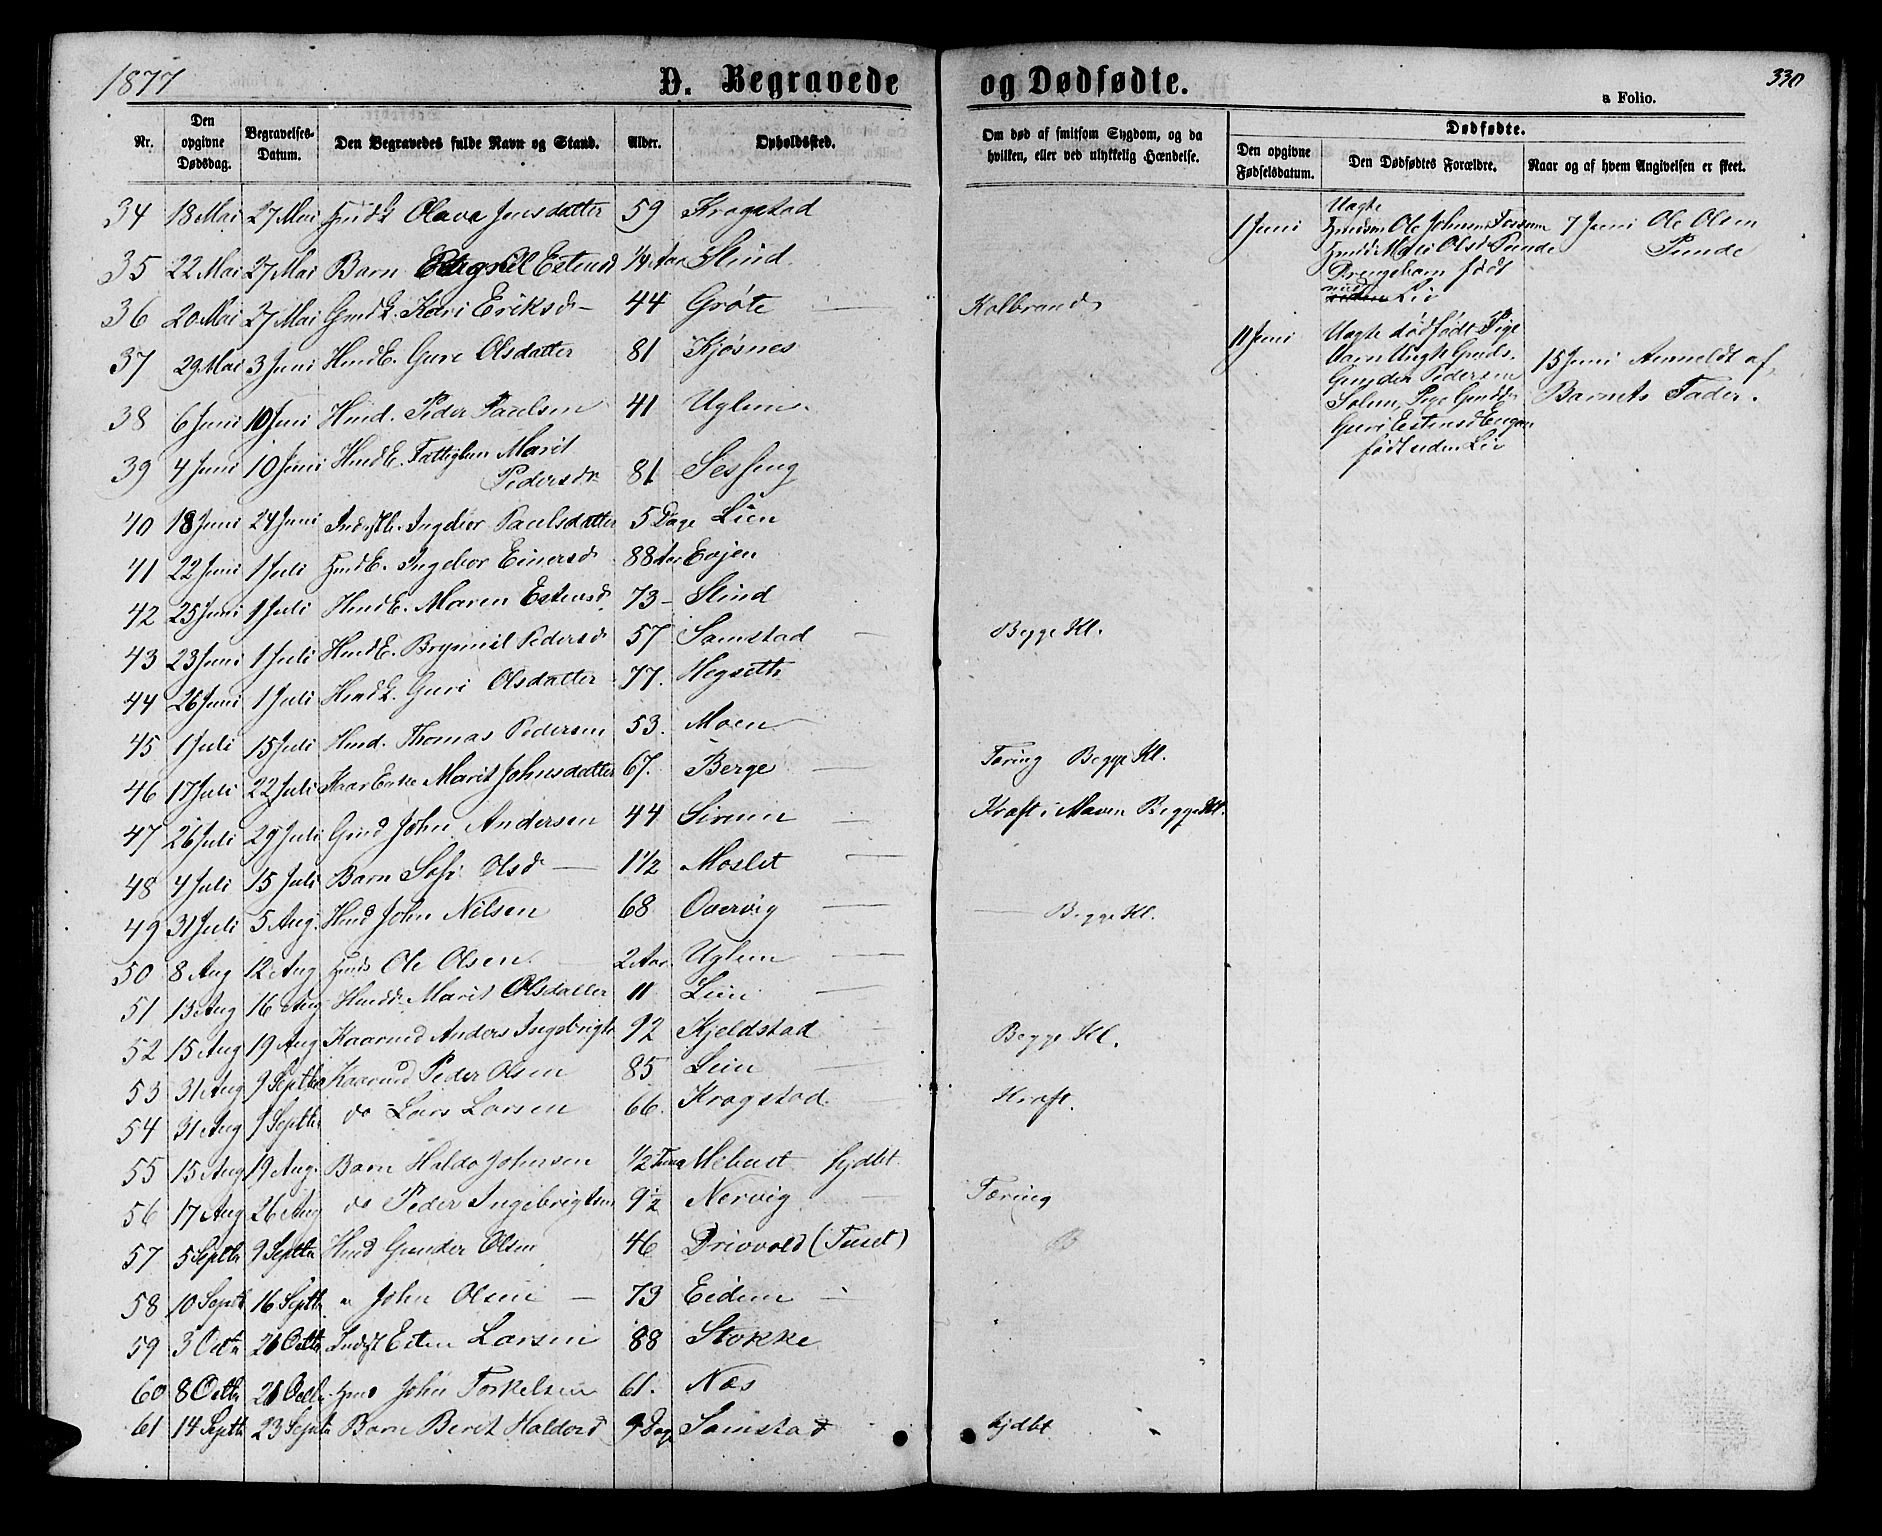 1877
D. Begravede og Dødfødte.
330
a Folio.
Nr.
Den opgivne Dødsdag.
Begravelses-Datum.
Den Begravedes fulde Navn og Stand.
Alder.
Opholdssted.
Om død af smitsom Sygdom, og da hvilken, eller ved ulykkelig Hændelse.
Dødfødte.
Den opgivne Fødselsdatum.
Den Dødfødtes Forældre.
Naar og af hvem Angivelsen er skeet.
34 18 Mai 27 Mai Olava Jensdatter 59 Krogstad
35 22 Mai 27 Mai Barn Estensd 1/4 Aar Slind
36 20 Mai 27 Mai Kari Eriksd 44 Grøte — Kolbrand
37 29 Mai 3 Juni HmdE. Guri Olsdatter 81 Kjøsnes
38 6 Juni 10 Juni Hmd. Peder Paulsen 41 Uglem
39 4 Juni 10 Juni HmdE. Fattiglem Marit
Pedersdr 81 Sesseng
40 18 Juni 24 Juni Ingebor Paulsdatter 5 Dage Lien
41 22 Juni 1 Juli HmdE. Ingebor Einersd 88 Aar Evjen
42 25 Juni 1 Juli HmdE. Maren Estensd. 73 - Slind
43 23 Juni 1 Juli HmdE. Brynnil Pedersd 57 Samstad — Begge Kl.
44 26 Juni 1 Juli Guri Olsdatter 77. Hegseth
45 1 Juli 15 Juli Hmd. Thomas Pedersen 53. Moen
46 17 Juli 22 Juli Kaar Enke Marit Johnsdatter 67. Berge — Tæring Begge Kl.
47 26 Juli 29 Juli Gmd John Andersen 44 — Kræft i Maven Begge Kl.
48 4 Juli 15 Juli Barn Sofi Olsd — 1 1/2 Moslet —
49 31 Juli 5 Aug. Hmd John Nilsen 68 Overvig — Begge Kl.
50 8 Aug 12 Aug Hmds Ole Olsen 2 Aar Uglem —
51 13 Aug 16 Aug Marit Olsdatter 11 Lien —
52 15 Aug 19 Aug Kaarmd Anders Ingebrigts 92 Kjeldstad Begge Kl.
53 31 Aug 9 Septbr Kaarmd Peder Olsen 85 Lien —
54 31 Aug 9 Septbr do Lars Larsen 66. Krogstad Kræft.
55 15 Aug 19 Aug. Barn Haldo Johnsen 1/2 Time hjdbt
56 17 Aug 26 Aug do Peder Ingebrigtsen 9 1/2 Nervig — Tæring
57 5 Septbr 9 Septbr Hmd Gunder Olsen 46 Drivvold (Tuset)
58 10 Septb 16 Septbr " John Olsen — 73 Eidem —
59 3 Octr 21 Octb Indst Esten Larsen 88 Stokke
60 8 Octbr 21 Octbr Hmd John Torkelsen 61. Næs
61 14 Septbr 23 Septbr Barn Berit Haldord 9 Dage Samstad hjdbt
1 Juni
Uægte
Ole Johnsen Fossum
Mari Olsd Punde
Drengebarn født
uden Liv
7 Juni Ole Olsen
Punde
11 Juni
Uægte dødfødt Pige
Barn
Gunder Pedersen
Solem, Pige
Guri Estensd Engan
født uden Liv
15 Juni Anmeldt af
Barnets Fader.